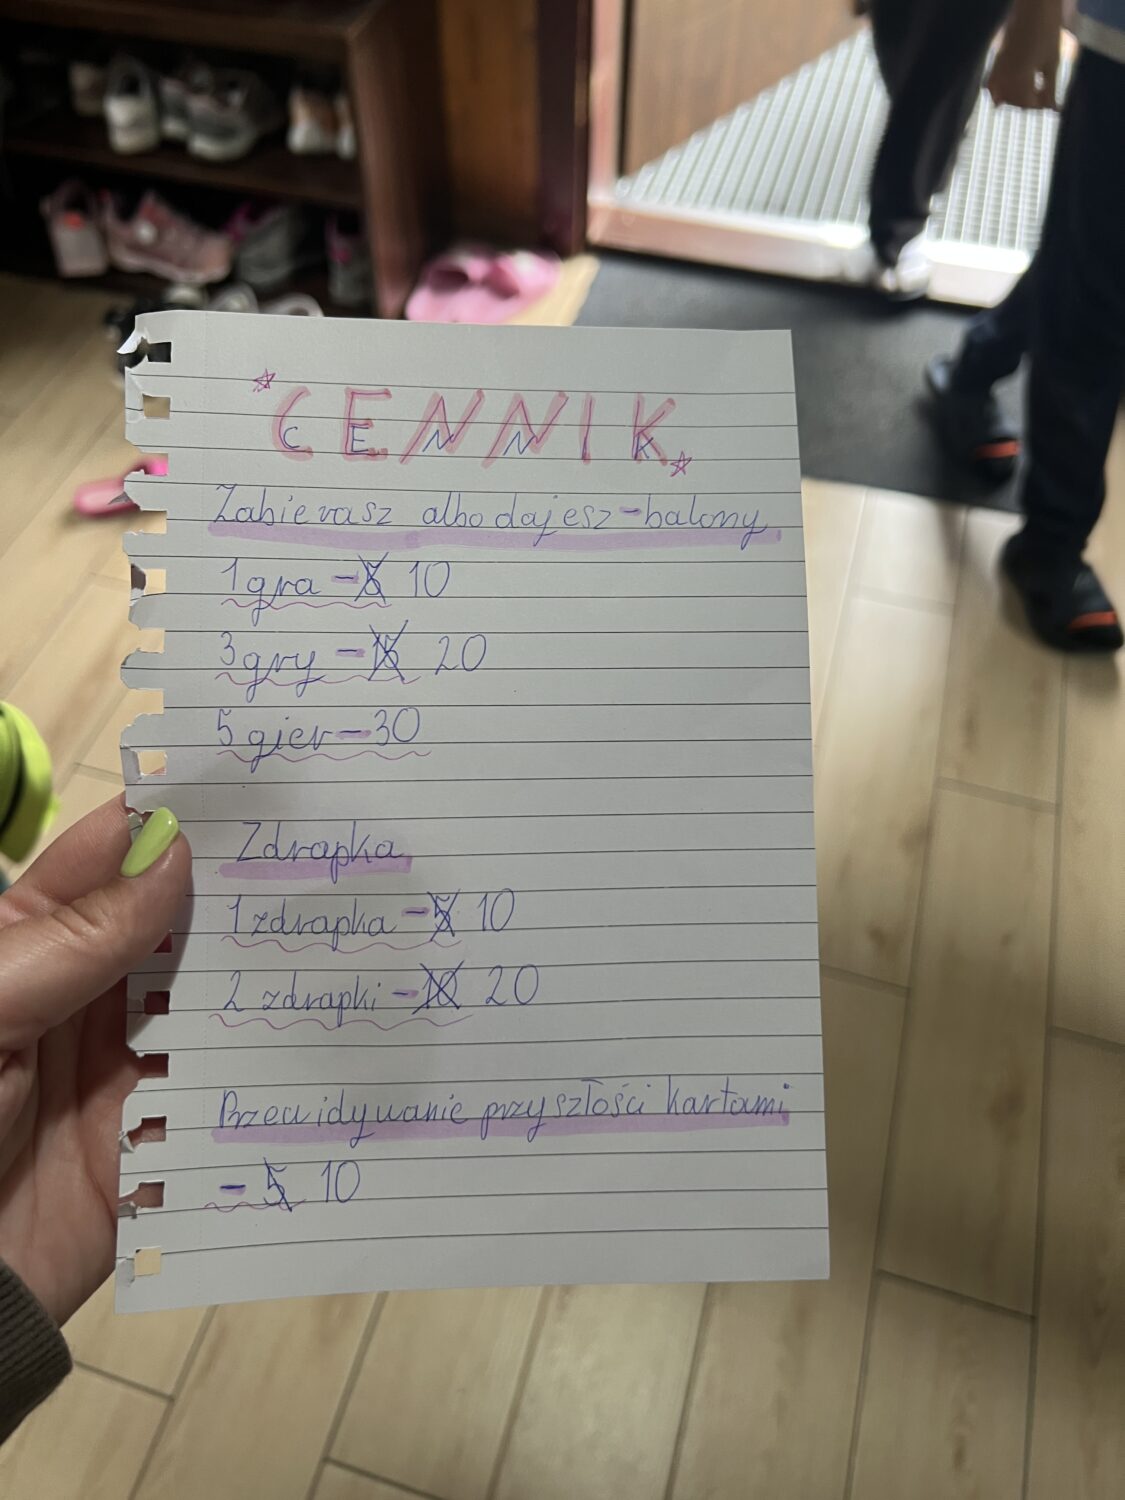 CENNIK
C E N N K
Zabierasz albo dajesz - balony
1 gra - 5 10
3 gry - 15 20
5 gier - 30
Zdrapka
1 zdrapka - 5 10
2 zdrapki - 10 20
Przewidywanie przyszłości kartami
- 5 10